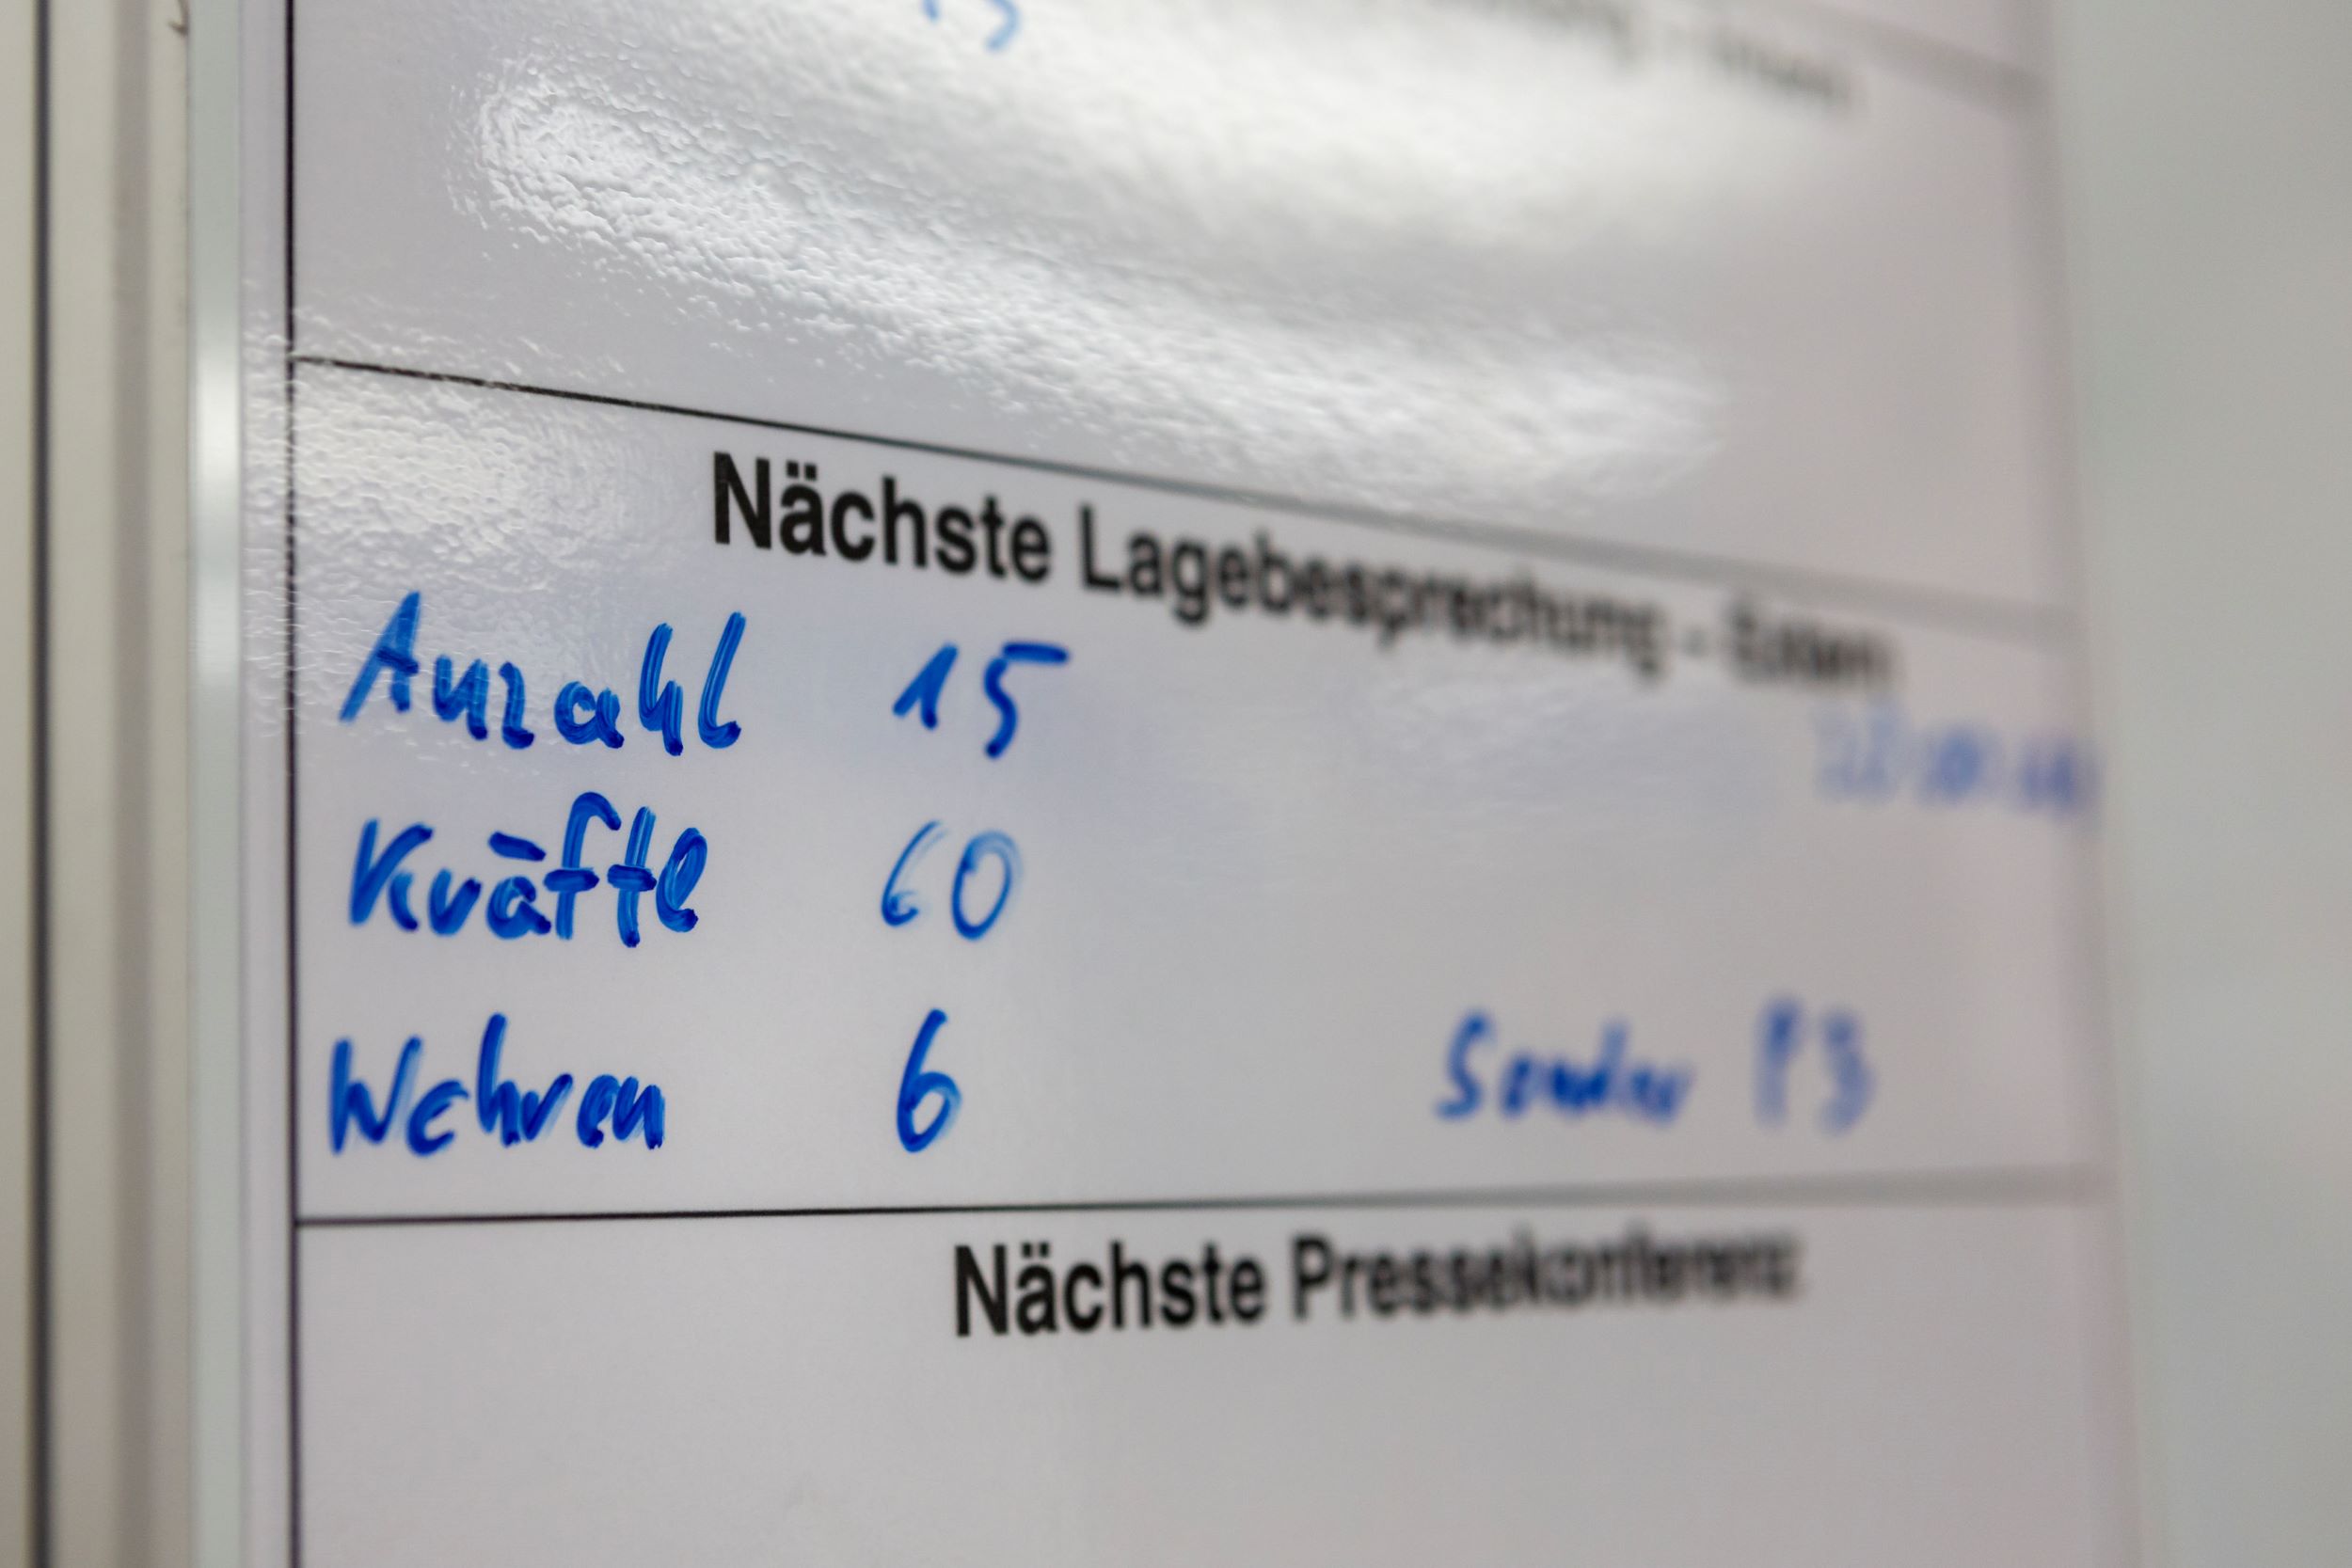 15
Nächste Lagebesprechung - Extern
Anzahl 15
Kräfte 60
Wehren 6 Sonder
Nächste Pressekonferenz